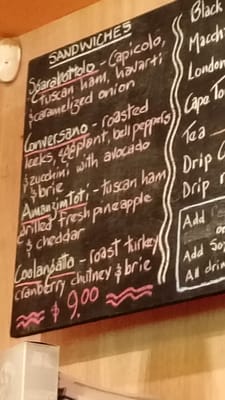 SANDWICHES
Sgarabottolo - Capicolo,
tuscan ham, havarti
& caramelized onion
Conversano - roasted
leeks, eggplant, bell peppers
& zucchini with avocado
& brie
AmanzimToti - tuscan ham
grilled fresh pineapple
& cheddar
Coolangatta - roast turkey
cranberry chutney & brie
$9.00
Black
Macch
London
Cape To
Tea
Drip C
Drip r
Add
or
Add So
All drin